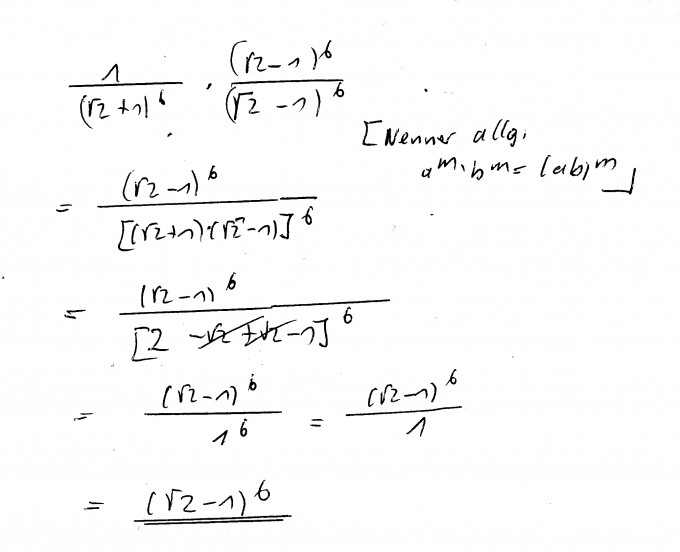 1/(√2+1)^6 · (√2-1)^6/(√2-1)^6
[Nenner allg.
a^m·b^m=(ab)^m]
= (√2-1)^6/[(√2+1)·(√2-1)]^6
= (√2-1)^6/[2-√2+√2-1]^6
= (√2-1)^6/1^6 = (√2-1)^6/1
= (√2-1)^6